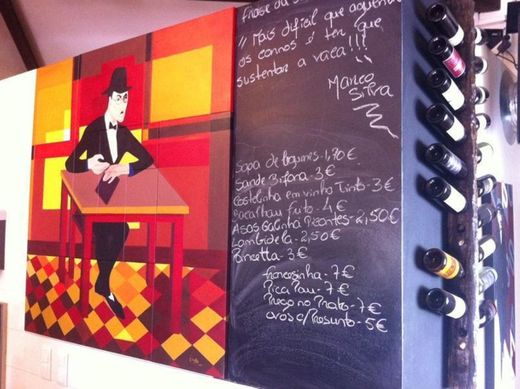 Frase da
"Mais difícil que aguentar
os cornos é ter que
sustentar a vaca!!!
Marco
Silva
Sopa de legumes - 1,70 €
Sande Bifana - 3 €
Costelinha em vinho tinto - 3 €
Bacalhau frito - 4 €
Asas Galinha Picantes - 2,50 €
Lombidela - 2,50 €
- 3 €
Francesinha - 7 €
Pica Pau - 7 €
Prego no Prato - 7 €
ovos c/ Presunto - 5 €